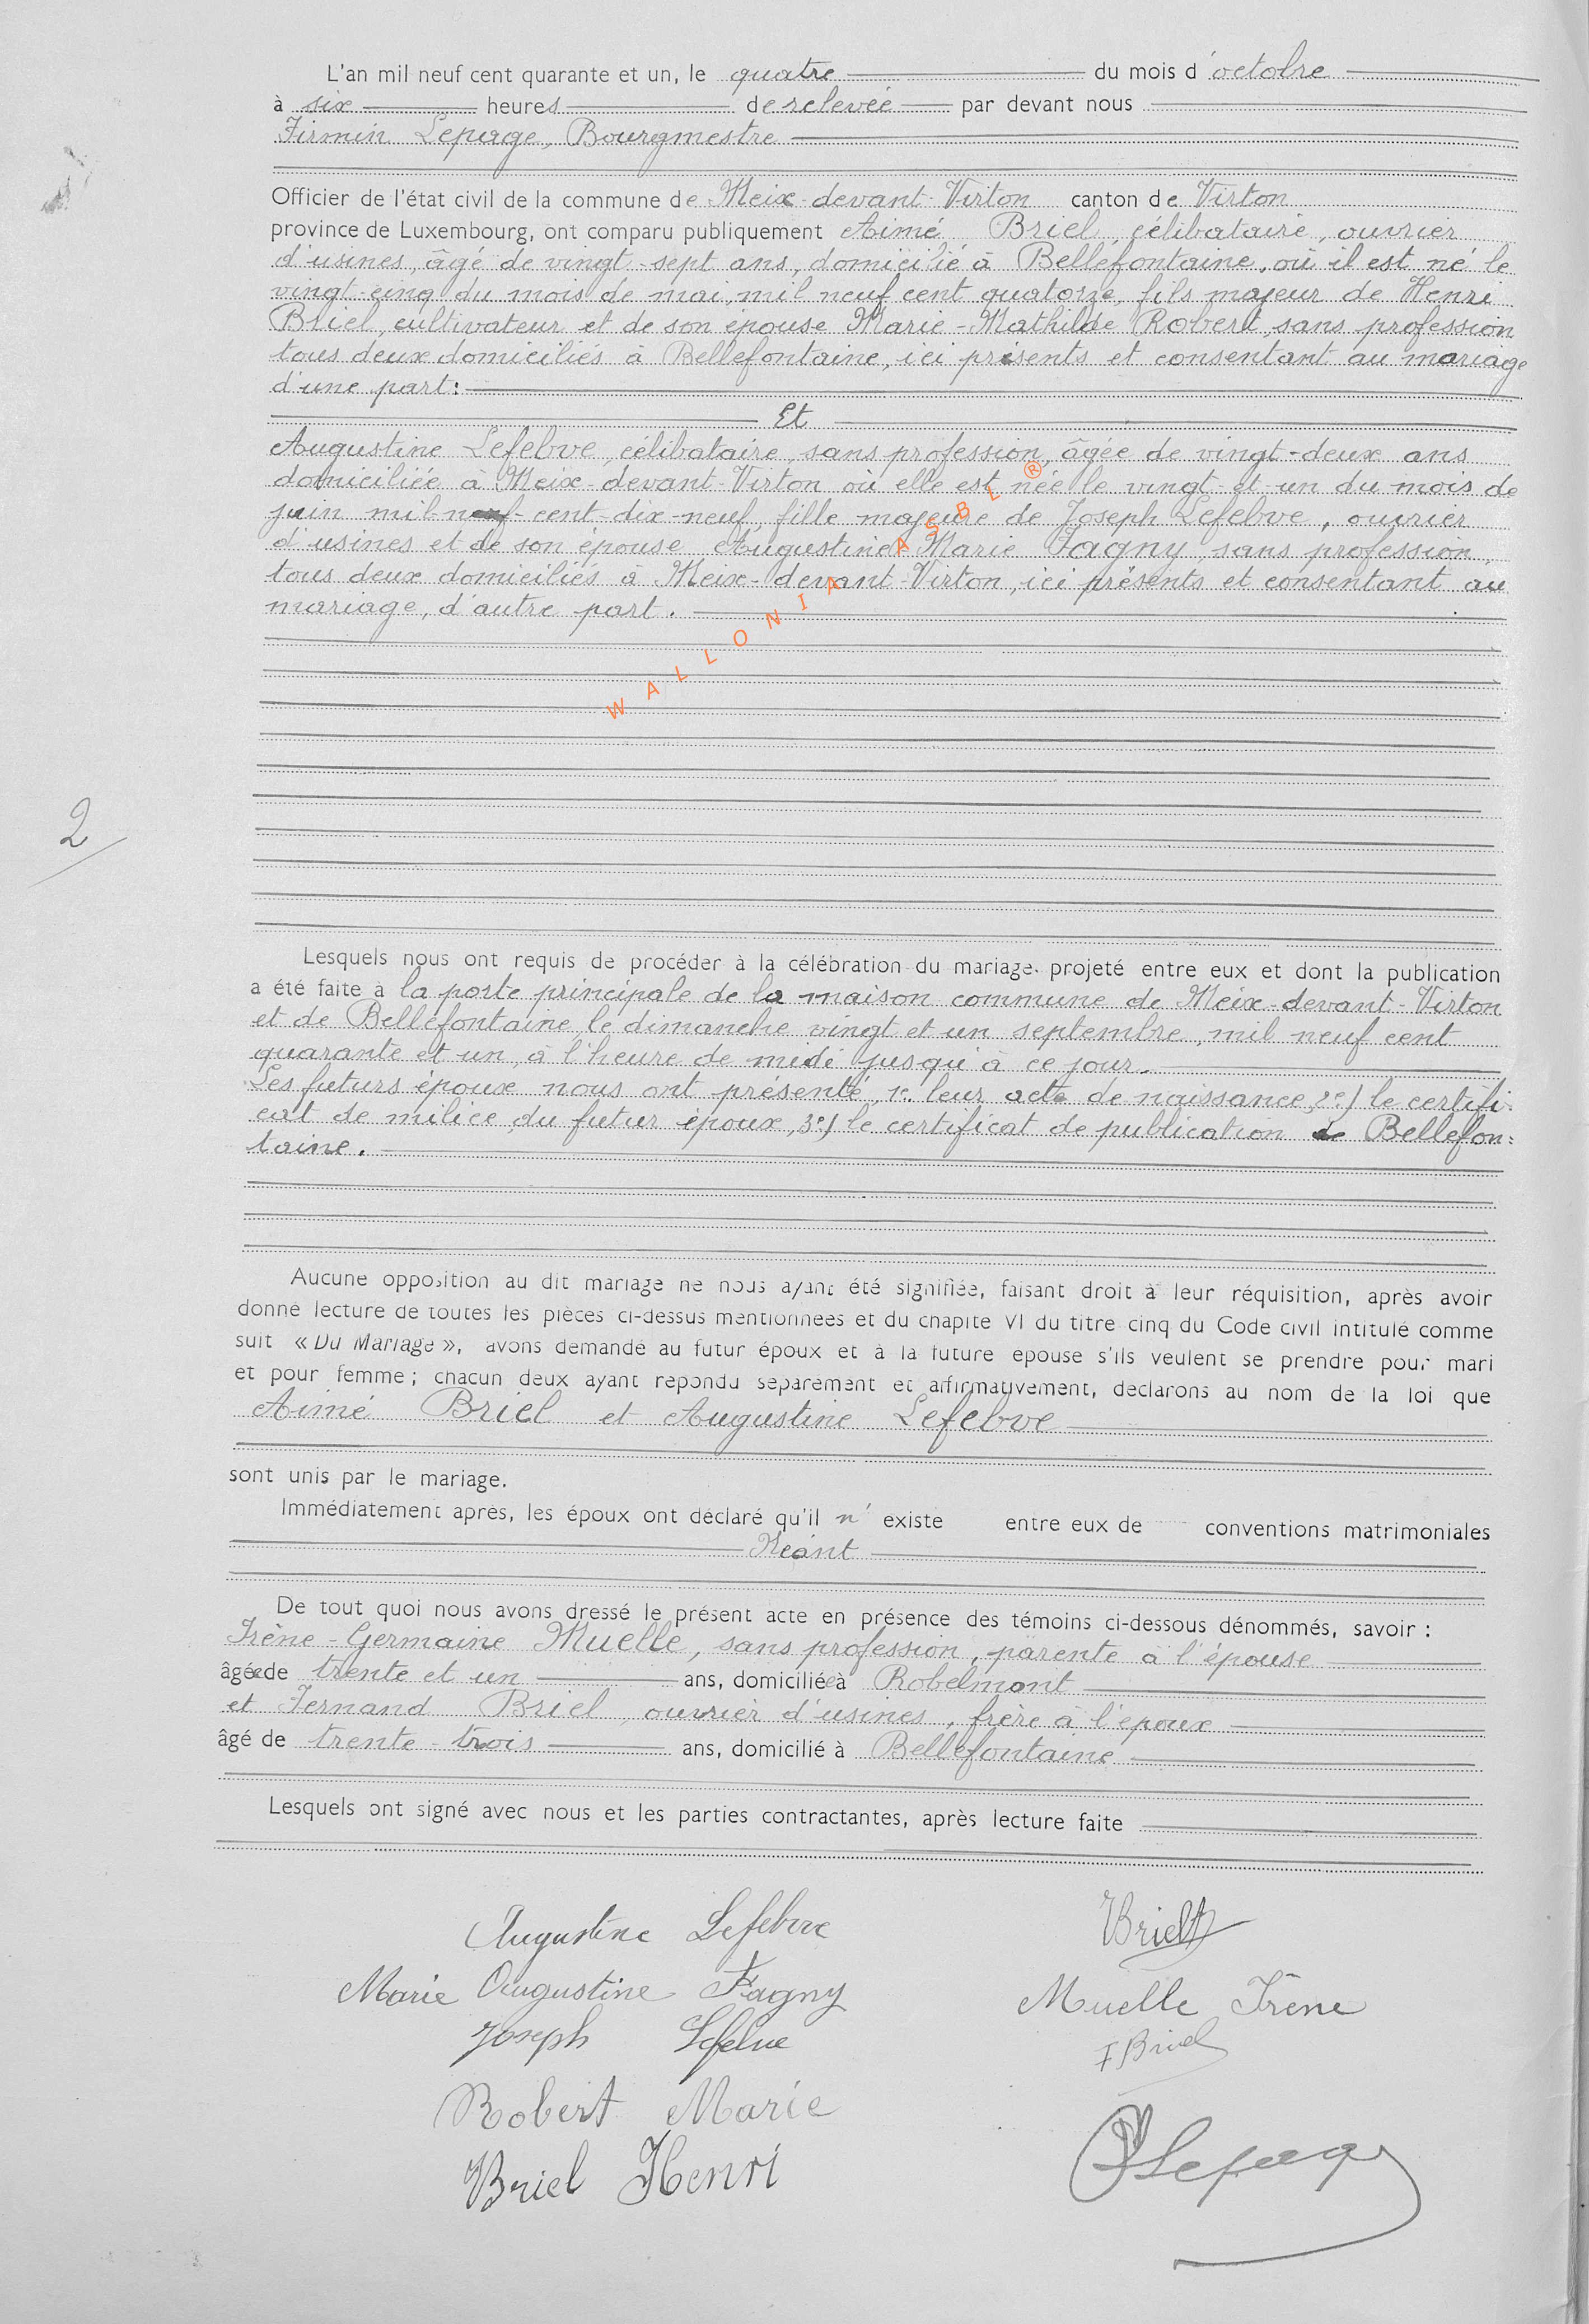 L'an mil neuf cent quarante et un, le quatre du mois d'octobre
à six heures de relevée par devant nous
Firmin Lepage, Bourgmestre
Officier de l'état civil de la commune de Meix-devant-Virton canton de Virton
province de Luxembourg, ont comparu publiquement Aimé Briel, célibataire, ouvrier
d'usines, âgé de vingt-sept ans, domicilié à Bellefontaine, où il est né le
vingt-cinq du mois de mai, mil neuf cent quatorze, fils majeur de Henri
Briel, cultivateur et de son épouse Marie-Mathilde Robert, sans profession
tous deux domiciliés à Bellefontaine, ici présents et consentant au mariage
d'une part:
Et
Augustine Lefebve, célibataire, sans profession, âgée de vingt-deux ans
domiciliée à Meix-devant-Virton où elle est née le vingt-et-un du mois de
juin mil-neuf-cent-dix-neuf, fille majeure de Joseph Lefebve, ouvrier
d'usines et de son épouse Augustine Marie Fagny, sans profession,
tous deux domiciliés à Meix-devant-Virton, ici présents et consentant au
mariage, d'autre part.
WALLONIA ASBL ®
2
Lesquels nous ont requis de procéder à la célébration du mariage projeté entre eux et dont la publication
a été faite à la porte principale de la maison commune de Meix-devant-Virton
et de Bellefontaine le dimanche vingt et un septembre, mil neuf cent
quarante et un, à l'heure de midi jusqu'à ce jour.
Les futurs époux nous ont présenté, 1e. leur acte de naissance, 2e) le certifi-
cat de milice du futur époux, 3e) le certificat de publication de Bellefon=
taine.
Aucune opposition au dit mariage ne nous ayant été signifiée, faisant droit à leur réquisition, après avoir
donné lecture de toutes les pièces ci-dessus mentionnées et du chapite VI du titre cinq du Code civil intitulé comme
suit « Du Mariage », avons demandé au futur époux et à la future épouse s'ils veulent se prendre pour mari
et pour femme ; chacun deux ayant répondu séparément et affirmativement, déclarons au nom de la loi que
Aimé Briel et Augustine Lefebve
sont unis par le mariage.
Immédiatement après, les époux ont déclaré qu'il n' existe entre eux de conventions matrimoniales
Néant
De tout quoi nous avons dressé le présent acte en présence des témoins ci-dessous dénommés, savoir :
Irène-Germaine Muelle, sans profession, parente à l'épouse
âgée de trente et un ans, domiciliée à Robelmont
et Fernand Briel, ouvrier d'usines, frère à l'époux
âgé de trente-trois ans, domicilié à Bellefontaine
Lesquels ont signé avec nous et les parties contractantes, après lecture faite
Augustine Lefebve BrielA
Marie Augustine Fagny Muelle Irène
Joseph Lefebve F Briel
Robert Marie
Briel Henri FLepage